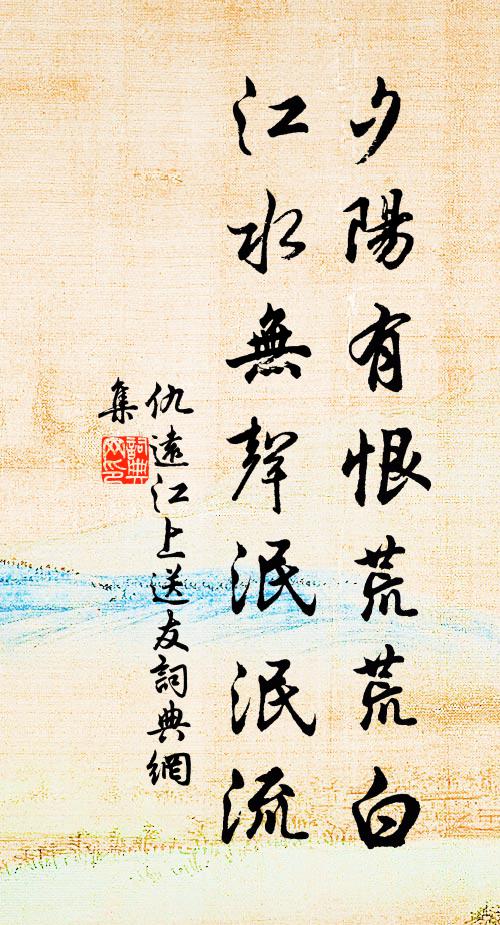 夕陽有恨荒荒白
江水無聲泯泯流
仇遠江上送友詞典網
集
詞典